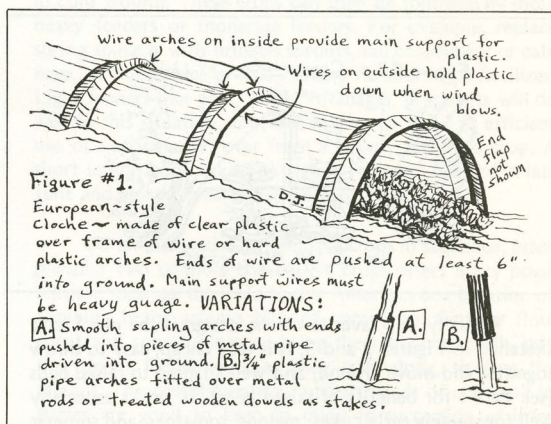 Wire arches on inside provide main support for
plastic.
Wires on outside hold plastic
down when wind
blows.
End
flap
not
shown
D.J.
Figure #1.
European~style
Cloche ~ made of clear plastic
over frame of wire or hard
plastic arches. Ends of wire are pushed at least 6"
into ground. Main support wires must
be heavy guage. VARIATIONS:
A. Smooth sapling arches with ends
pushed into pieces of metal pipe
driven into ground. B. 3/4" plastic
pipe arches fitted over metal
rods or treated wooden dowels as stakes.
A.
B.